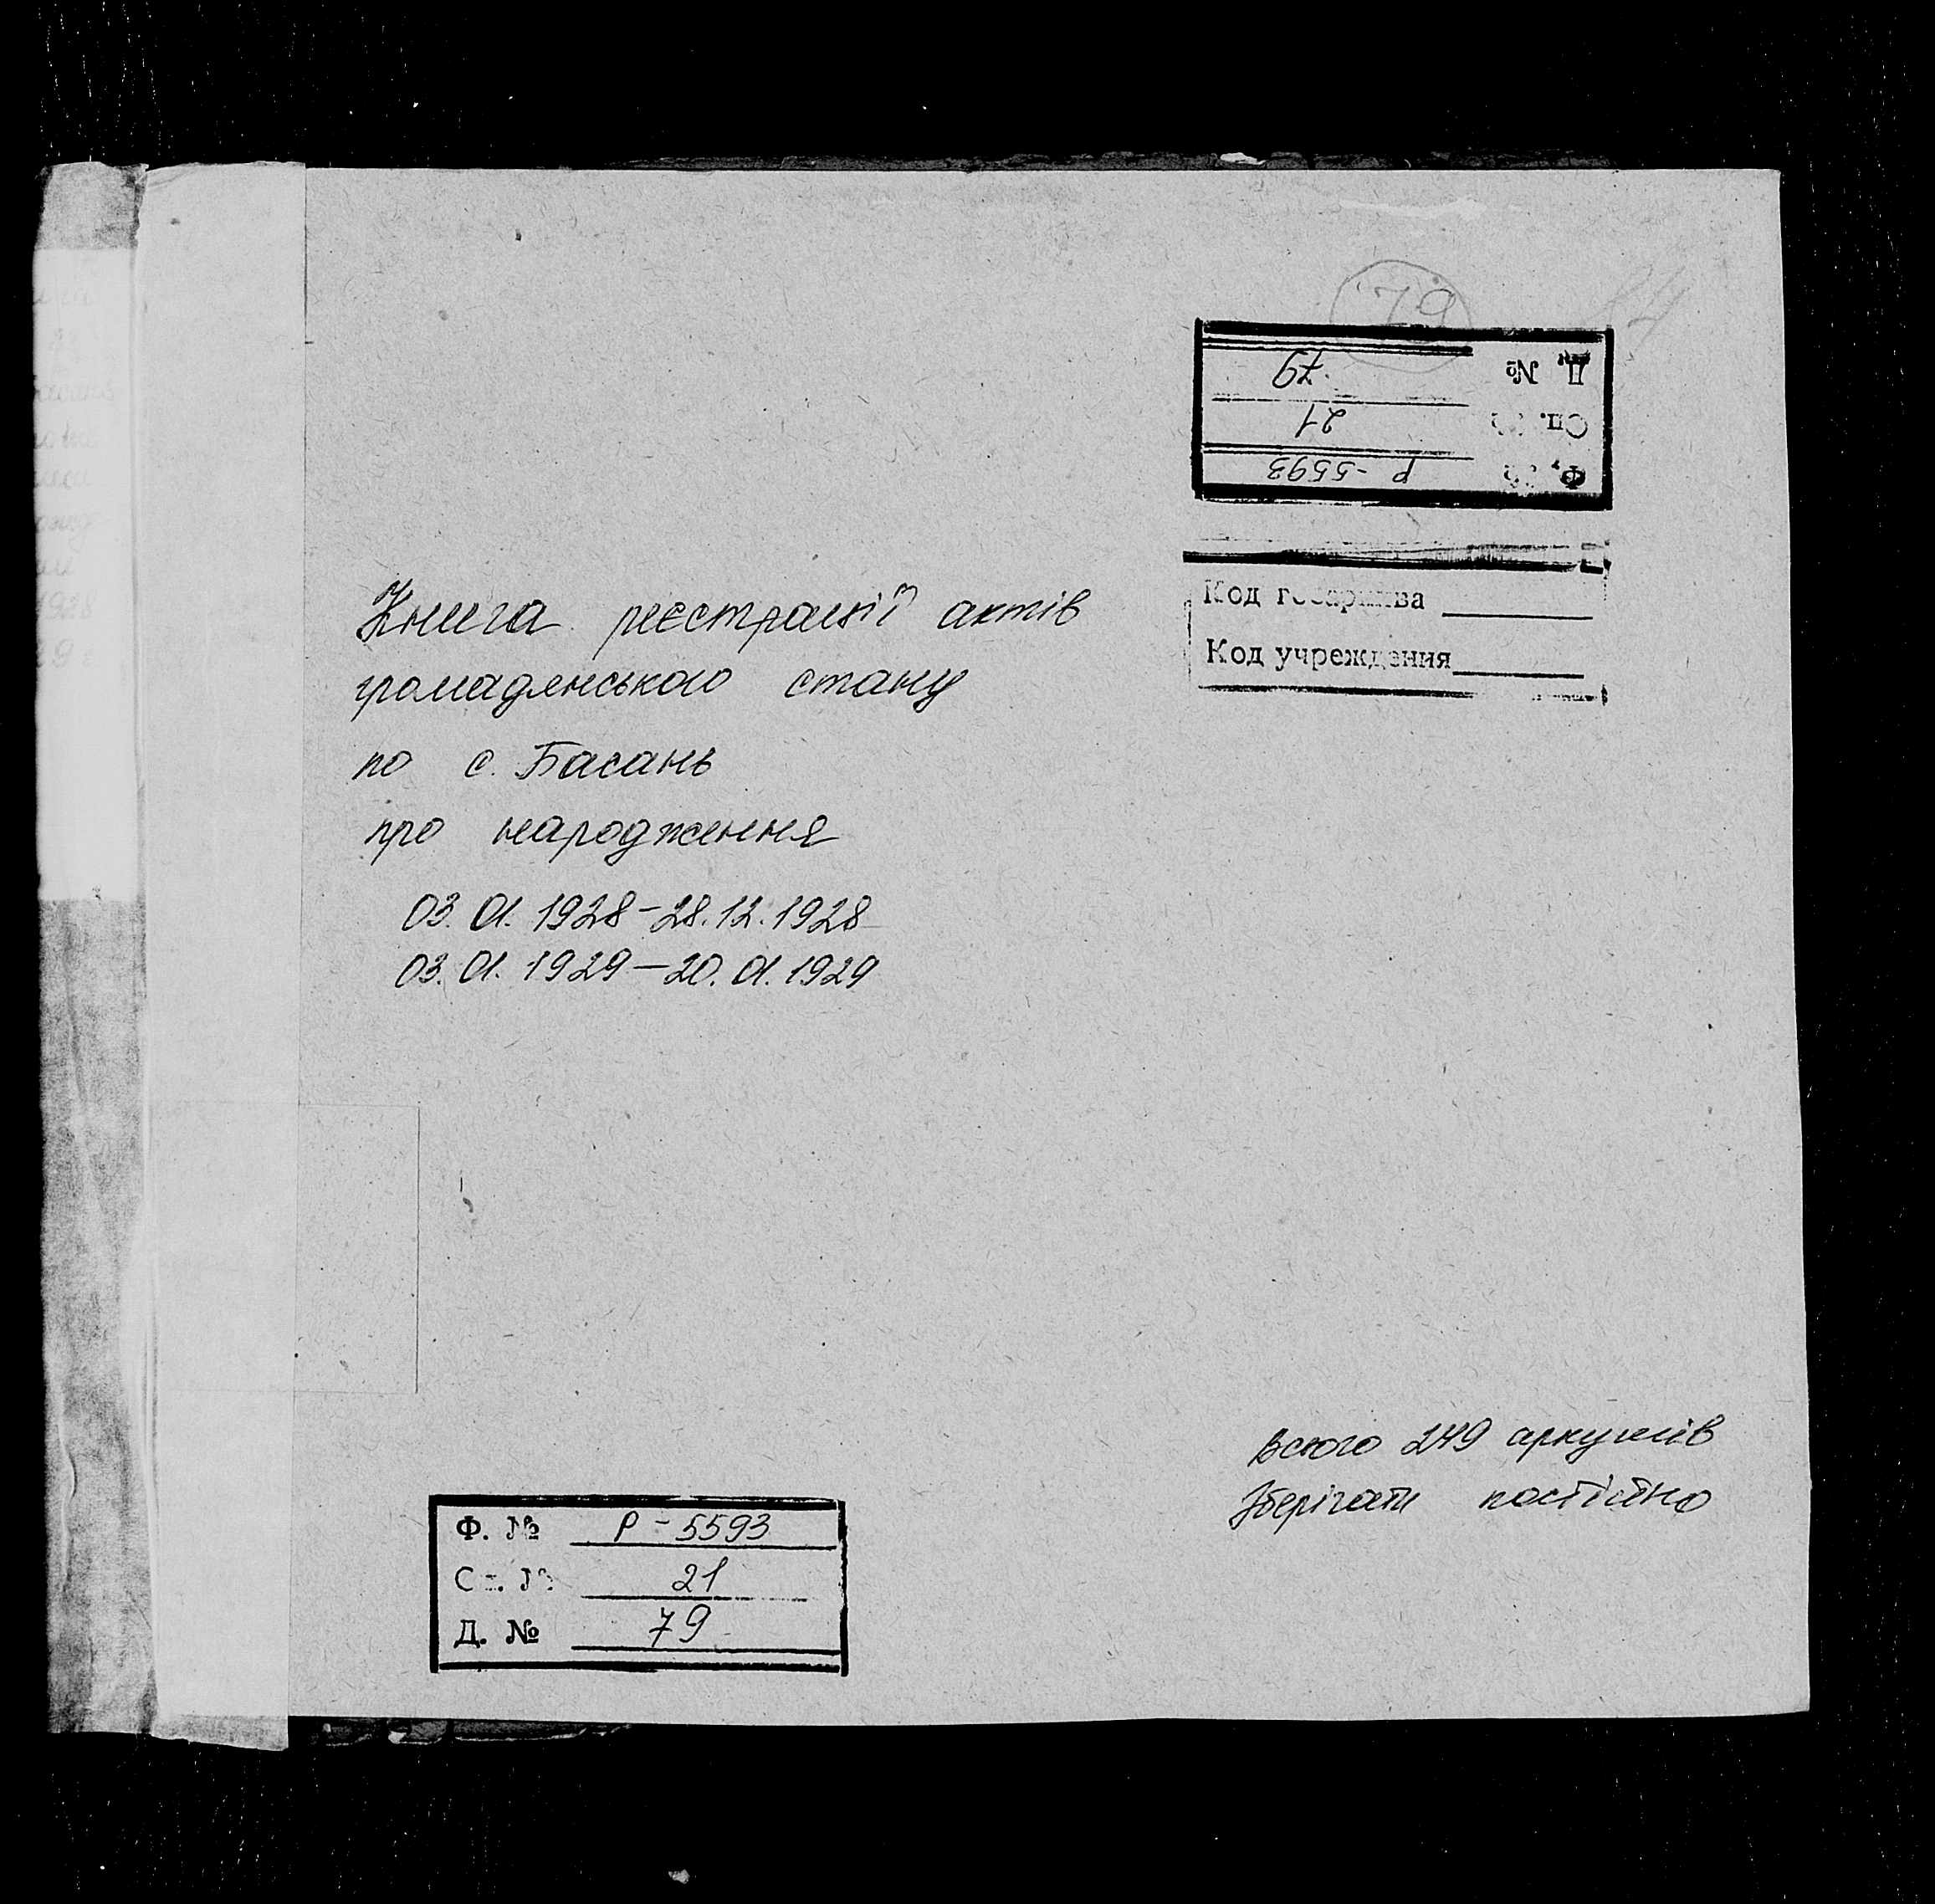 79
84
Д. № 79
Оп. № 21
Ф. № Р-5593
Код госархива
Код учреждения
Книга реєстрації актів
громадянського стану
по с. Басань
про народження
03.01.1928-28.12.1928
03.01.1929-20.01.1929
всього 249 аркушів
Зберігати постійно
Ф. № Р-5593
Оп. № 21
Д. № 79